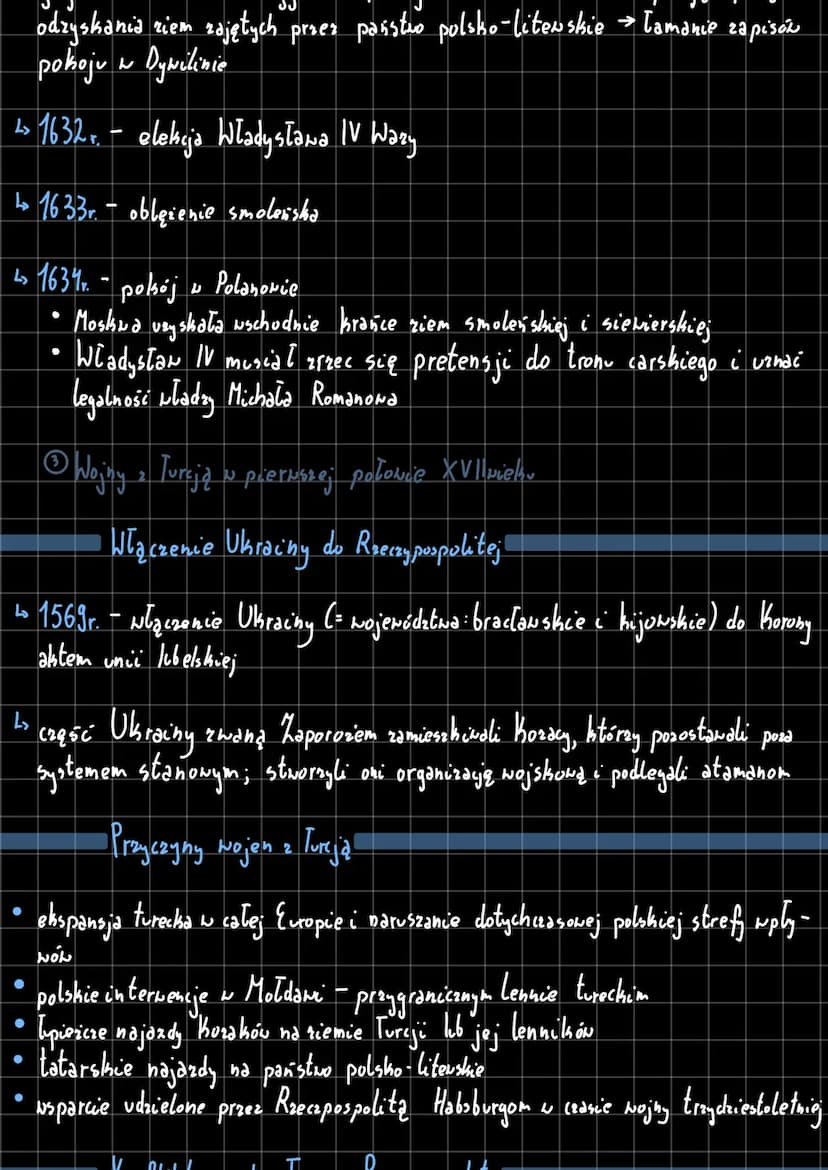 odzyskania ziem zajętych przez państwo polsko-litewskie → łamanie zapisów
pokoju w Dywilinie
↳ 1632r. - elekcja Władysława IV Wazy
↳ 1633r. - oblężenie smoleńska
↳ 1634r. - pokój w Polanowie
• Moskwa uzyskała wschodnie krańce ziem smoleńskiej i siewierskiej
• Władysław IV musiał zrzec się pretensji do tronu carskiego i uznać
legalność władzy Michała Romanowa
③ Wojny z Turcją w pierwszej połowie XVII wieku
Włączenie Ukrainy do Rzeczypospolitej
↳ 1569r. - włączenie Ukrainy (= województwa: bracławskie i kijowskie) do Korony
aktem unii lubelskiej
↳ część Ukrainy zwaną Zaporożem zamieszkiwali Kozacy, którzy pozostawali poza
systemem stanowym; stworzyli oni organizację wojskową i podlegali atamanom
Przyczyny wojen z Turcją
• ekspansja turecka w całej Europie i naruszanie dotychczasowej polskiej strefy wpły-
wów
• polskie interwencje w Mołdawi - przygranicznym lennie tureckim
• łupieżcze najazdy Kozaków na ziemie Turcji lub jej lenników
• tatarskie najazdy na państwo polsko-litewskie
• wsparcie udzielone przez Rzeczpospolitą Habsburgom w czasie wojny trzydziestoletniej